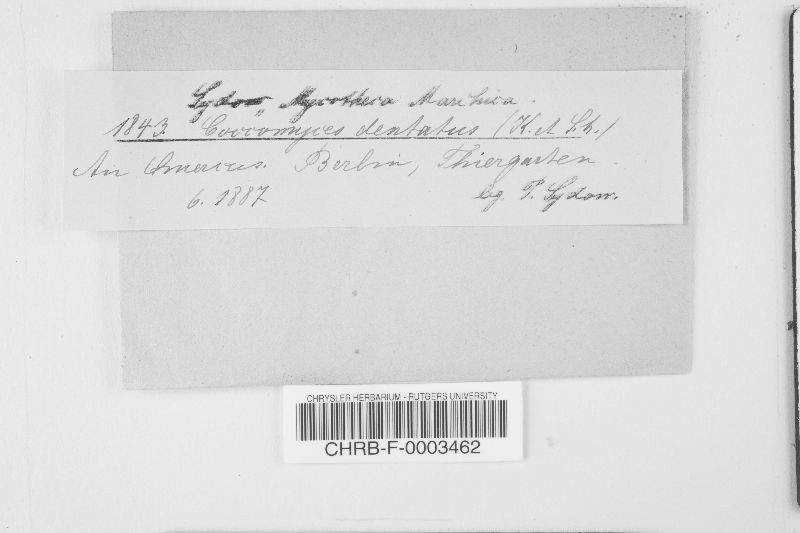 Sydow, Mycotheca Marchica.
1843. Coccomyces dentatus (K. et Sch.)
An Quercus. Berlin, Thiergarten.
6. 1887 leg. P. Sydow.
CHRYSLER HERBARIUM - RUTGERS UNIVERSITY
CHRB-F-0003462